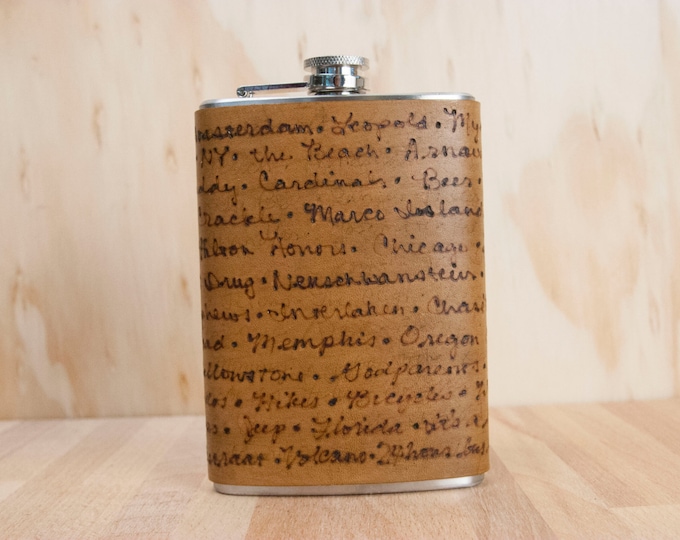 Amsterdam • Leopold • My
• NY • the Beach •
ddy • Cardinals • Beer •
Crackle • Marco Island
Honors • Chicago •
Drug • Neuschwanstein •
hews • Interlaken • Chas
nd • Memphis • Oregon
llowstone • Godparents •
os • Hikes • Bicycles •
s • Jeep • Florida • it's a
• Volcano • 24 hour